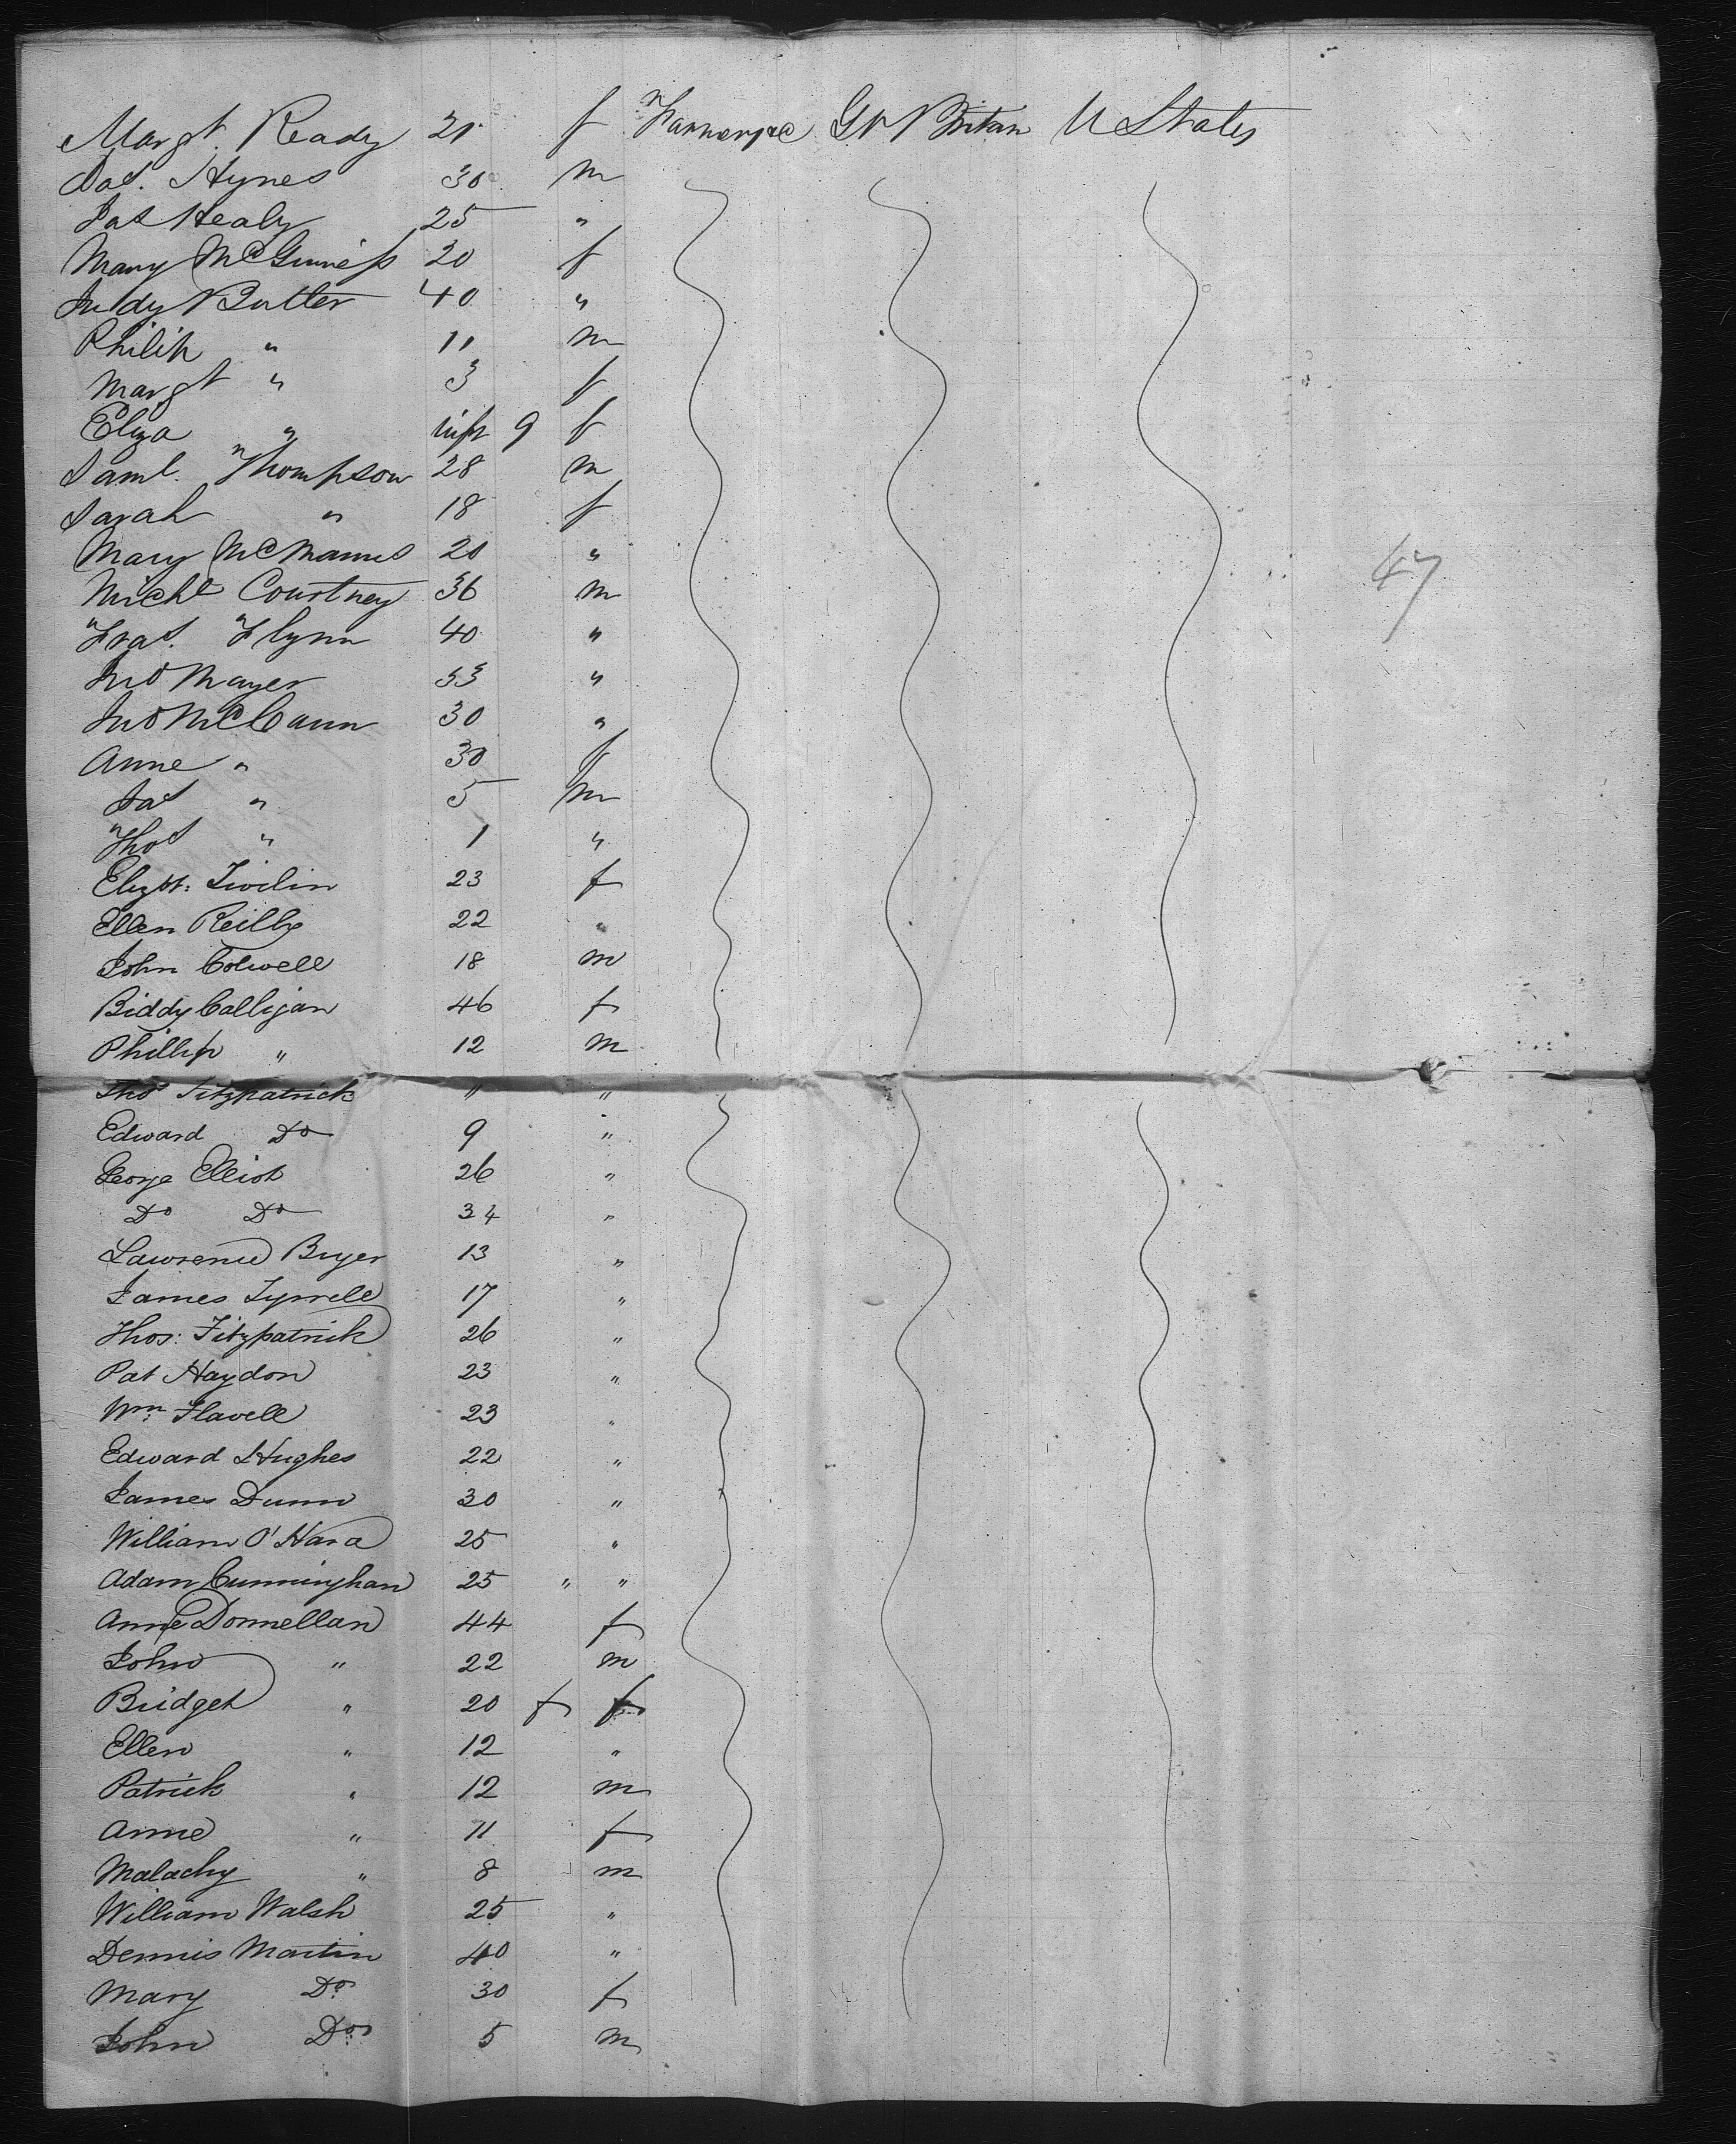 Margt. Ready 21 f Farmers &c Gt Britan U States
Pat. Hynes 30 m
Pat Healy 25 "
Mary McGuiness 20 f
Judy Butler 40 "
Philip " 11 m
Margt " 3 f
Eliza " inft 9 f
Saml. Thompson 28 m
Sarah " 18 f
Mary McManus 20 "
Michl Courtney 36 m
Fras. Flynn 40 "
Jno Mayer 33 "
Jno McCann 30 "
Anne " 30 f
Pat " 5 m
Thos " 1 "
Elizbt: 23 f
Ellen Reilly 22 "
John Colwell 18 m
Biddy Galligan 46 f
Phillip " 12 m
Thos Fitzpatrick " "
Edward Do 9 "
George Elliot 26 "
Do Do 34 "
Lawrence Bryer 13 "
James Tyrrell 17 "
Thos: Fitzpatrick 26 "
Pat Haydon 23 "
Wm: Flavell 23 "
Edward Hughes 22 "
James Dunn 30 "
William O'Hara 25 "
Adam Cunninghan 25 " "
Anne Donnellan 44 f
John " 22 m
Bridget " 20 f f
Ellen " 12 "
Patrick " 12 m
Anne " 11 f
Malachy " 8 m
William Walsh 25 "
Dennis Martin 40 "
Mary Do 30 f
John Do 5 m
47